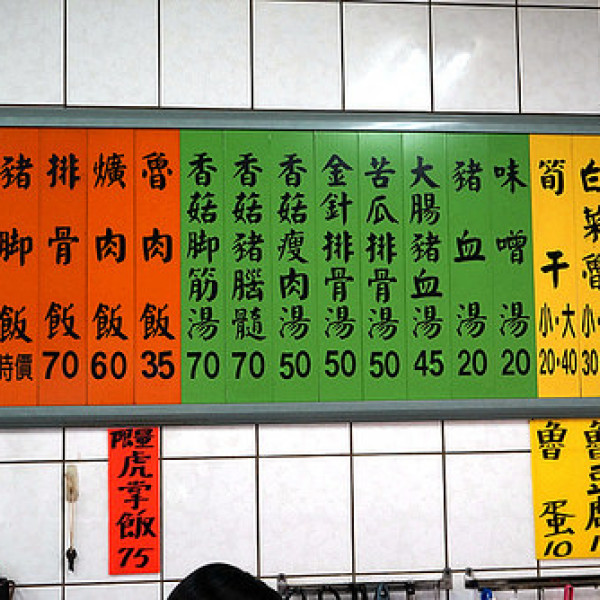 白菜魯 小· 30
筍干 小·大 20·40
味噌湯 20
豬血湯 20
大腸豬血湯 45
苦瓜排骨湯 50
金針排骨湯 50
香菇瘦肉湯 50
香菇豬腦髓 70
香菇脚筋湯 70
魯肉飯 35
爌肉飯 60
排骨飯 70
豬脚飯 時價
魯蛋 10
限量虎掌飯 75